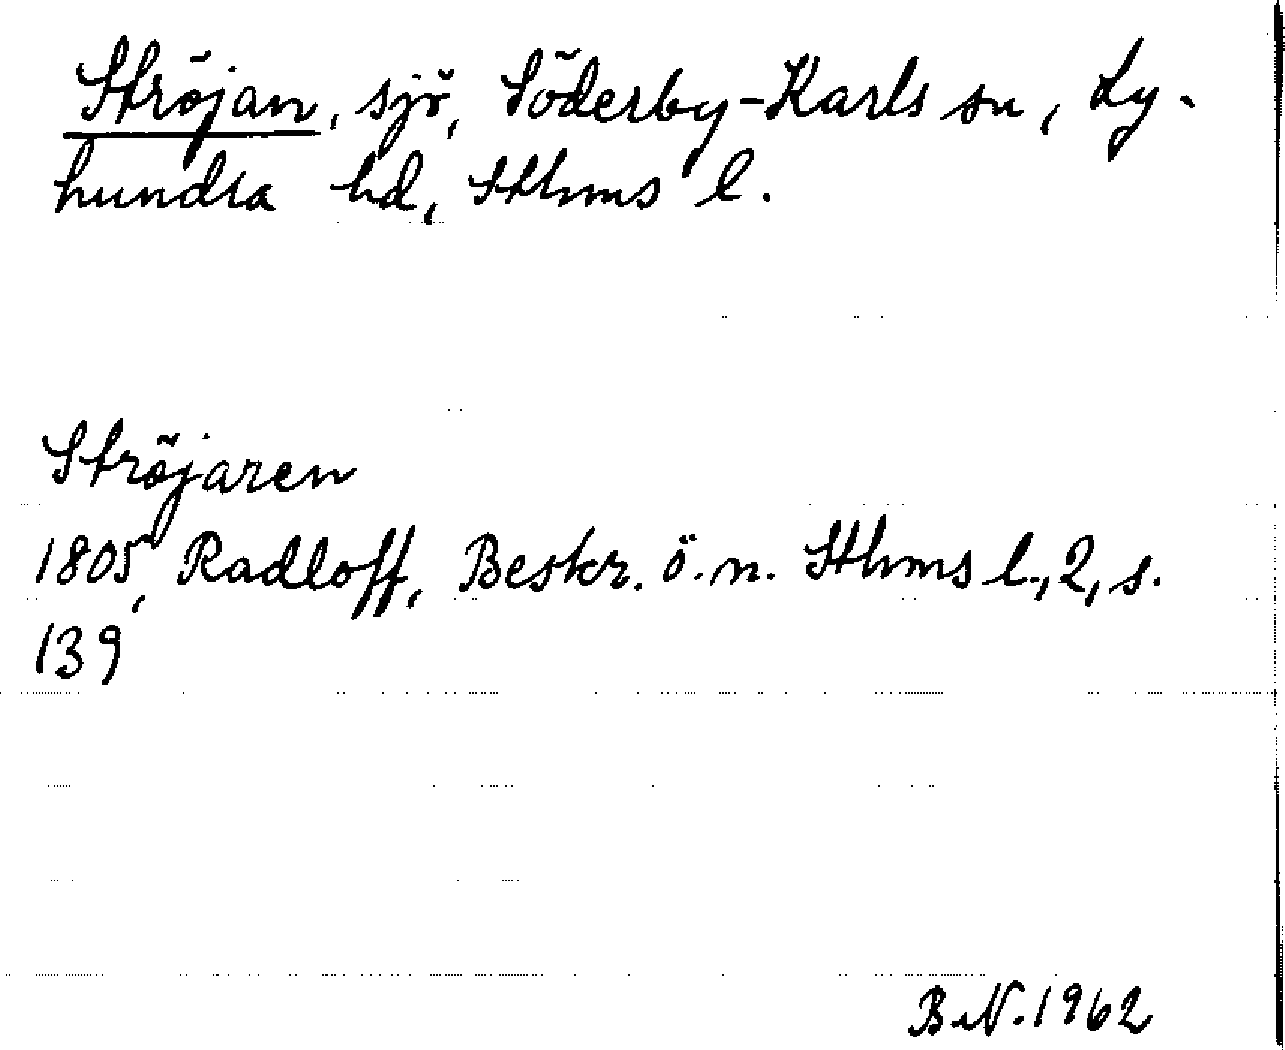 Ströjan, sjö, Söderby-Karls sn, Ly-
hundra hd, Sthms l.
Ströjaren
1805, Radloff, Beskr. ö. n. Sthms l., 2, s.
139
B.N. 1962